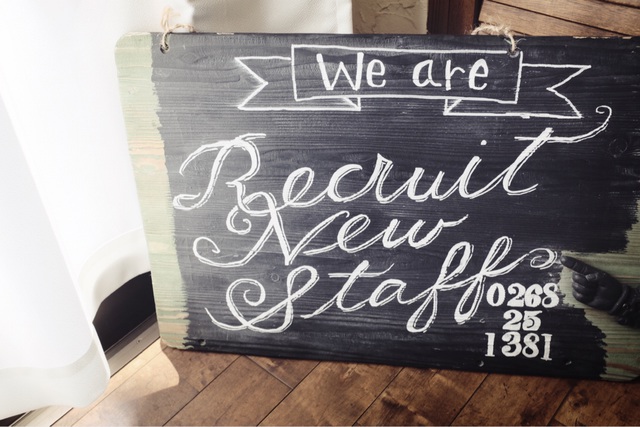 We are
Recruit
New
Staff
0268
25
1381